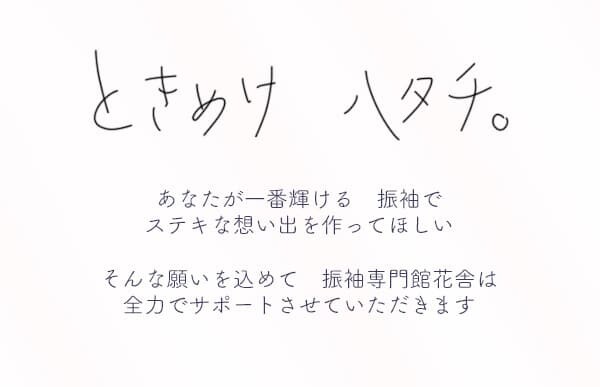 ときめけ　ハタチ。
あなたが一番輝ける　振袖で
ステキな想い出を作ってほしい
そんな願いを込めて　振袖専門館花舎は
全力でサポートさせていただきます